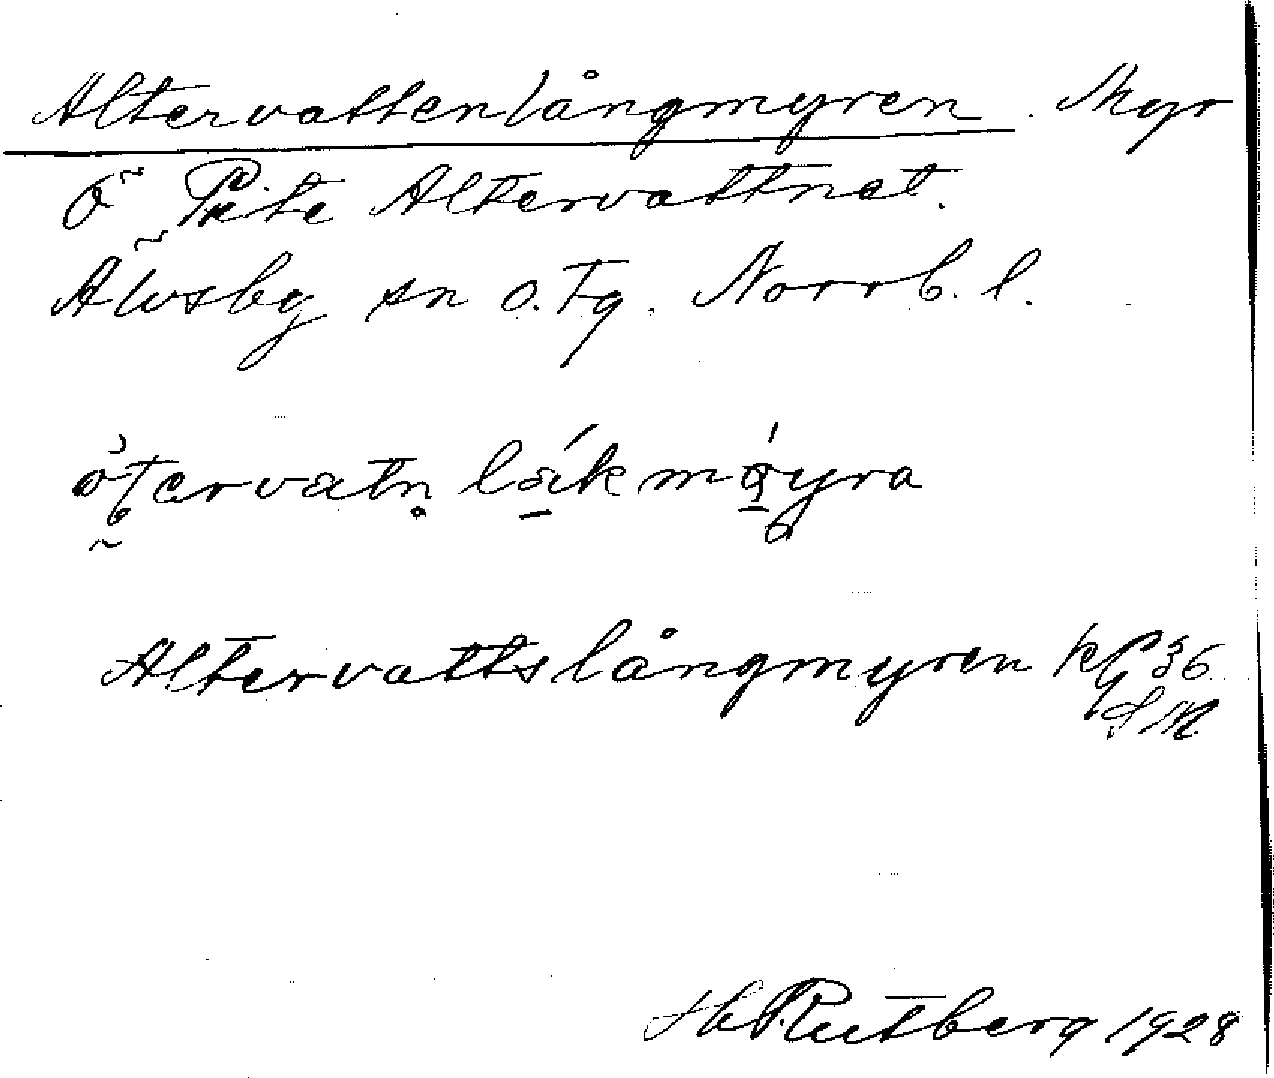 Altervattenlångmyren. Myr
Ö Pite Altervattnet.
Älvsby sn o. tg. Norrb. l.
Altervattslångmyren kt 36
Rutberg 1928